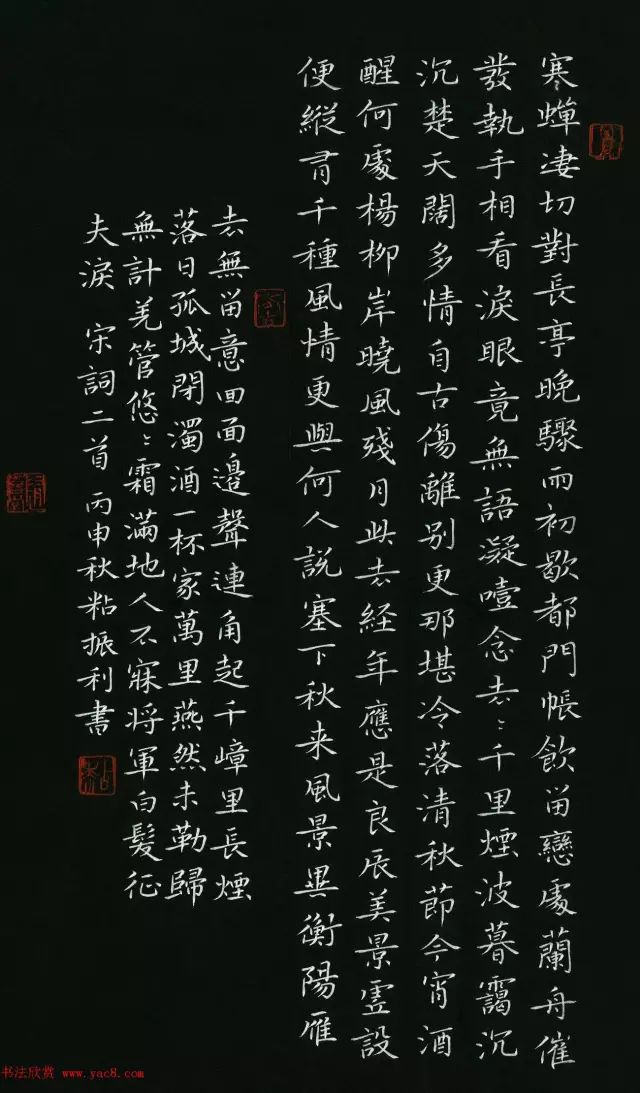 寒蟬淒切對長亭晚驟雨初歇都門帳飲留戀處蘭舟催
發執手相看淚眼竟無語凝噎念去〻千里煙波暮靄沉
沉楚天闊多情自古傷離別更那堪冷落清秋節今宵酒
醒何處楊柳岸曉風殘月此去経年應是良辰美景虛設
便縱有千種風情更與何人說塞下秋来風景異衡陽雁
去無留意四面邊聲連角起千嶂里長煙
落日孤城閉濁酒一杯家萬里燕然未勒歸
無計羌管悠〻霜滿地人不寐將軍白髮征
夫淚 宋詞二首 丙申秋粘振利書
书法欣赏 www.yac8.com